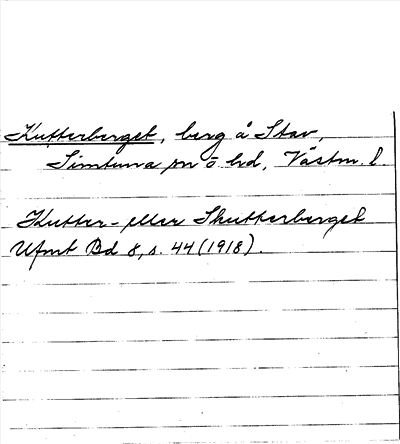 Kutterberget, berg å Stav,
Simtuna sn o hd, Västm. l.
Kutter- eller Skutterberget
Ufmt Bd 8, s. 44 (1918).